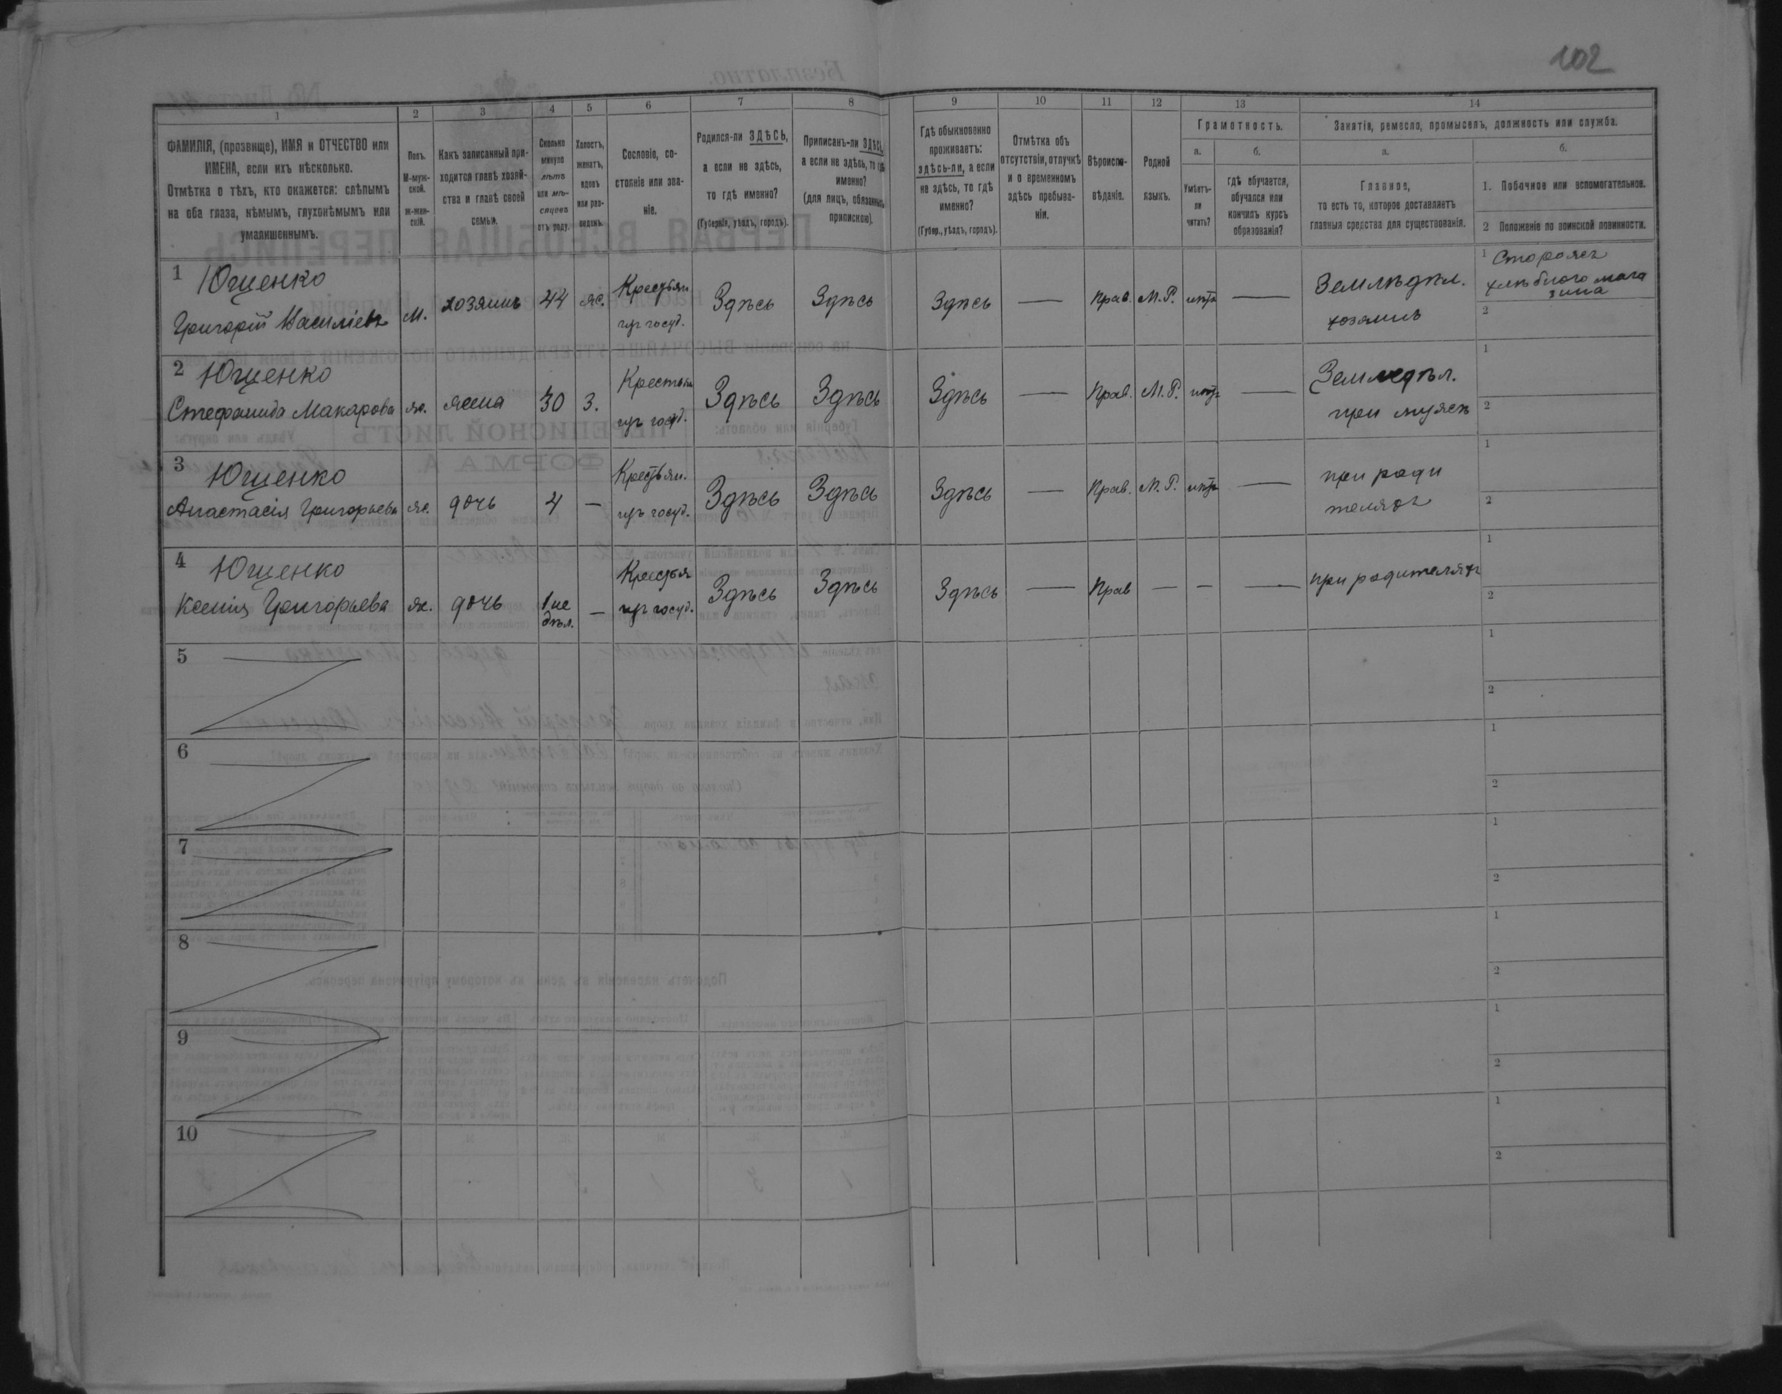 102
1
2
3
4
5
6
7
8
9
10
11
12
13
14
ФАМИЛІЯ, (прозвище), ИМЯ и ОТЧЕСТВО или
ИМЕНА, если ихъ нѣсколько.
Отмѣтка о тѣхъ, кто окажется: слѣпымъ
на оба глаза, нѣмымъ, глухонѣмымъ или
умалишеннымъ.
Полъ.
М-муж-
ской.
ж-жен-
скій.
Какъ записанный при-
ходится главѣ хозяй-
ства и главѣ своей
семьи.
Сколько
минуло
лѣтъ
или мѣ-
сяцевъ
отъ роду.
Холостъ,
женатъ,
вдовъ
или раз-
веденъ.
Сословіе, со-
стояніе или зва-
ніе.
Родился-ли ЗДѢСЬ,
а если не здѣсь,
то гдѣ именно?
(Губернія, уѣздъ, городъ).
Приписанъ-ли ЗДѢСЬ,
а если не здѣсь, то гдѣ
именно?
(для лицъ, обязанныхъ
припискою).
Гдѣ обыкновенно
проживаетъ:
здѣсь-ли, а если
не здѣсь, то гдѣ
именно?
(Губер., уѣздъ, городъ).
Отмѣтка объ
отсутствіи, отлучкѣ
и о временномъ
здѣсь пребыва-
ніи.
Вѣроиспо-
вѣданіе.
Родной
языкъ.
Грамотность.
а.
Умѣетъ-
ли
читать?
б.
гдѣ обучается,
обучался или
кончилъ курсъ
образованія?
Занятіе, ремесло, промыселъ, должность или служба.
а.
Главное,
то есть то, которое доставляетъ
главныя средства для существованія.
б.
1. Побочное или вспомогательное.
2 Положеніе по воинской повинности.
1 Ющенко
Григорій Василіевъ м. хозяинъ 44 ж. Крестьян. изъ госуд. Здѣсь Здѣсь Здѣсь — Прав. М.Р. нѣтъ — Земледѣл. хозяинъ
1 Сторожъ
хлѣбного мага
зина
2
2 Ющенко
Стефанида Макарова ж. жена 30 З. Крестьян изъ госуд. Здѣсь Здѣсь Здѣсь — Прав. М.Р. нѣтъ — Земледѣл. при мужѣ
1
2
3 Ющенко
Анастасія Григорьева ж. дочь 4 — Крестьян. изъ госуд. Здѣсь Здѣсь Здѣсь — Прав. М.Р. нѣтъ — при роди
теляхъ
1
2
4 Ющенко
Ксенія Григорьева ж. дочь 1 не
дѣл. — Крестья изъ госуд. Здѣсь Здѣсь Здѣсь — Прав — — — при родителяхъ
1
2
5
1
2
6
1
2
7
1
2
8
1
2
9
1
2
10
1
2